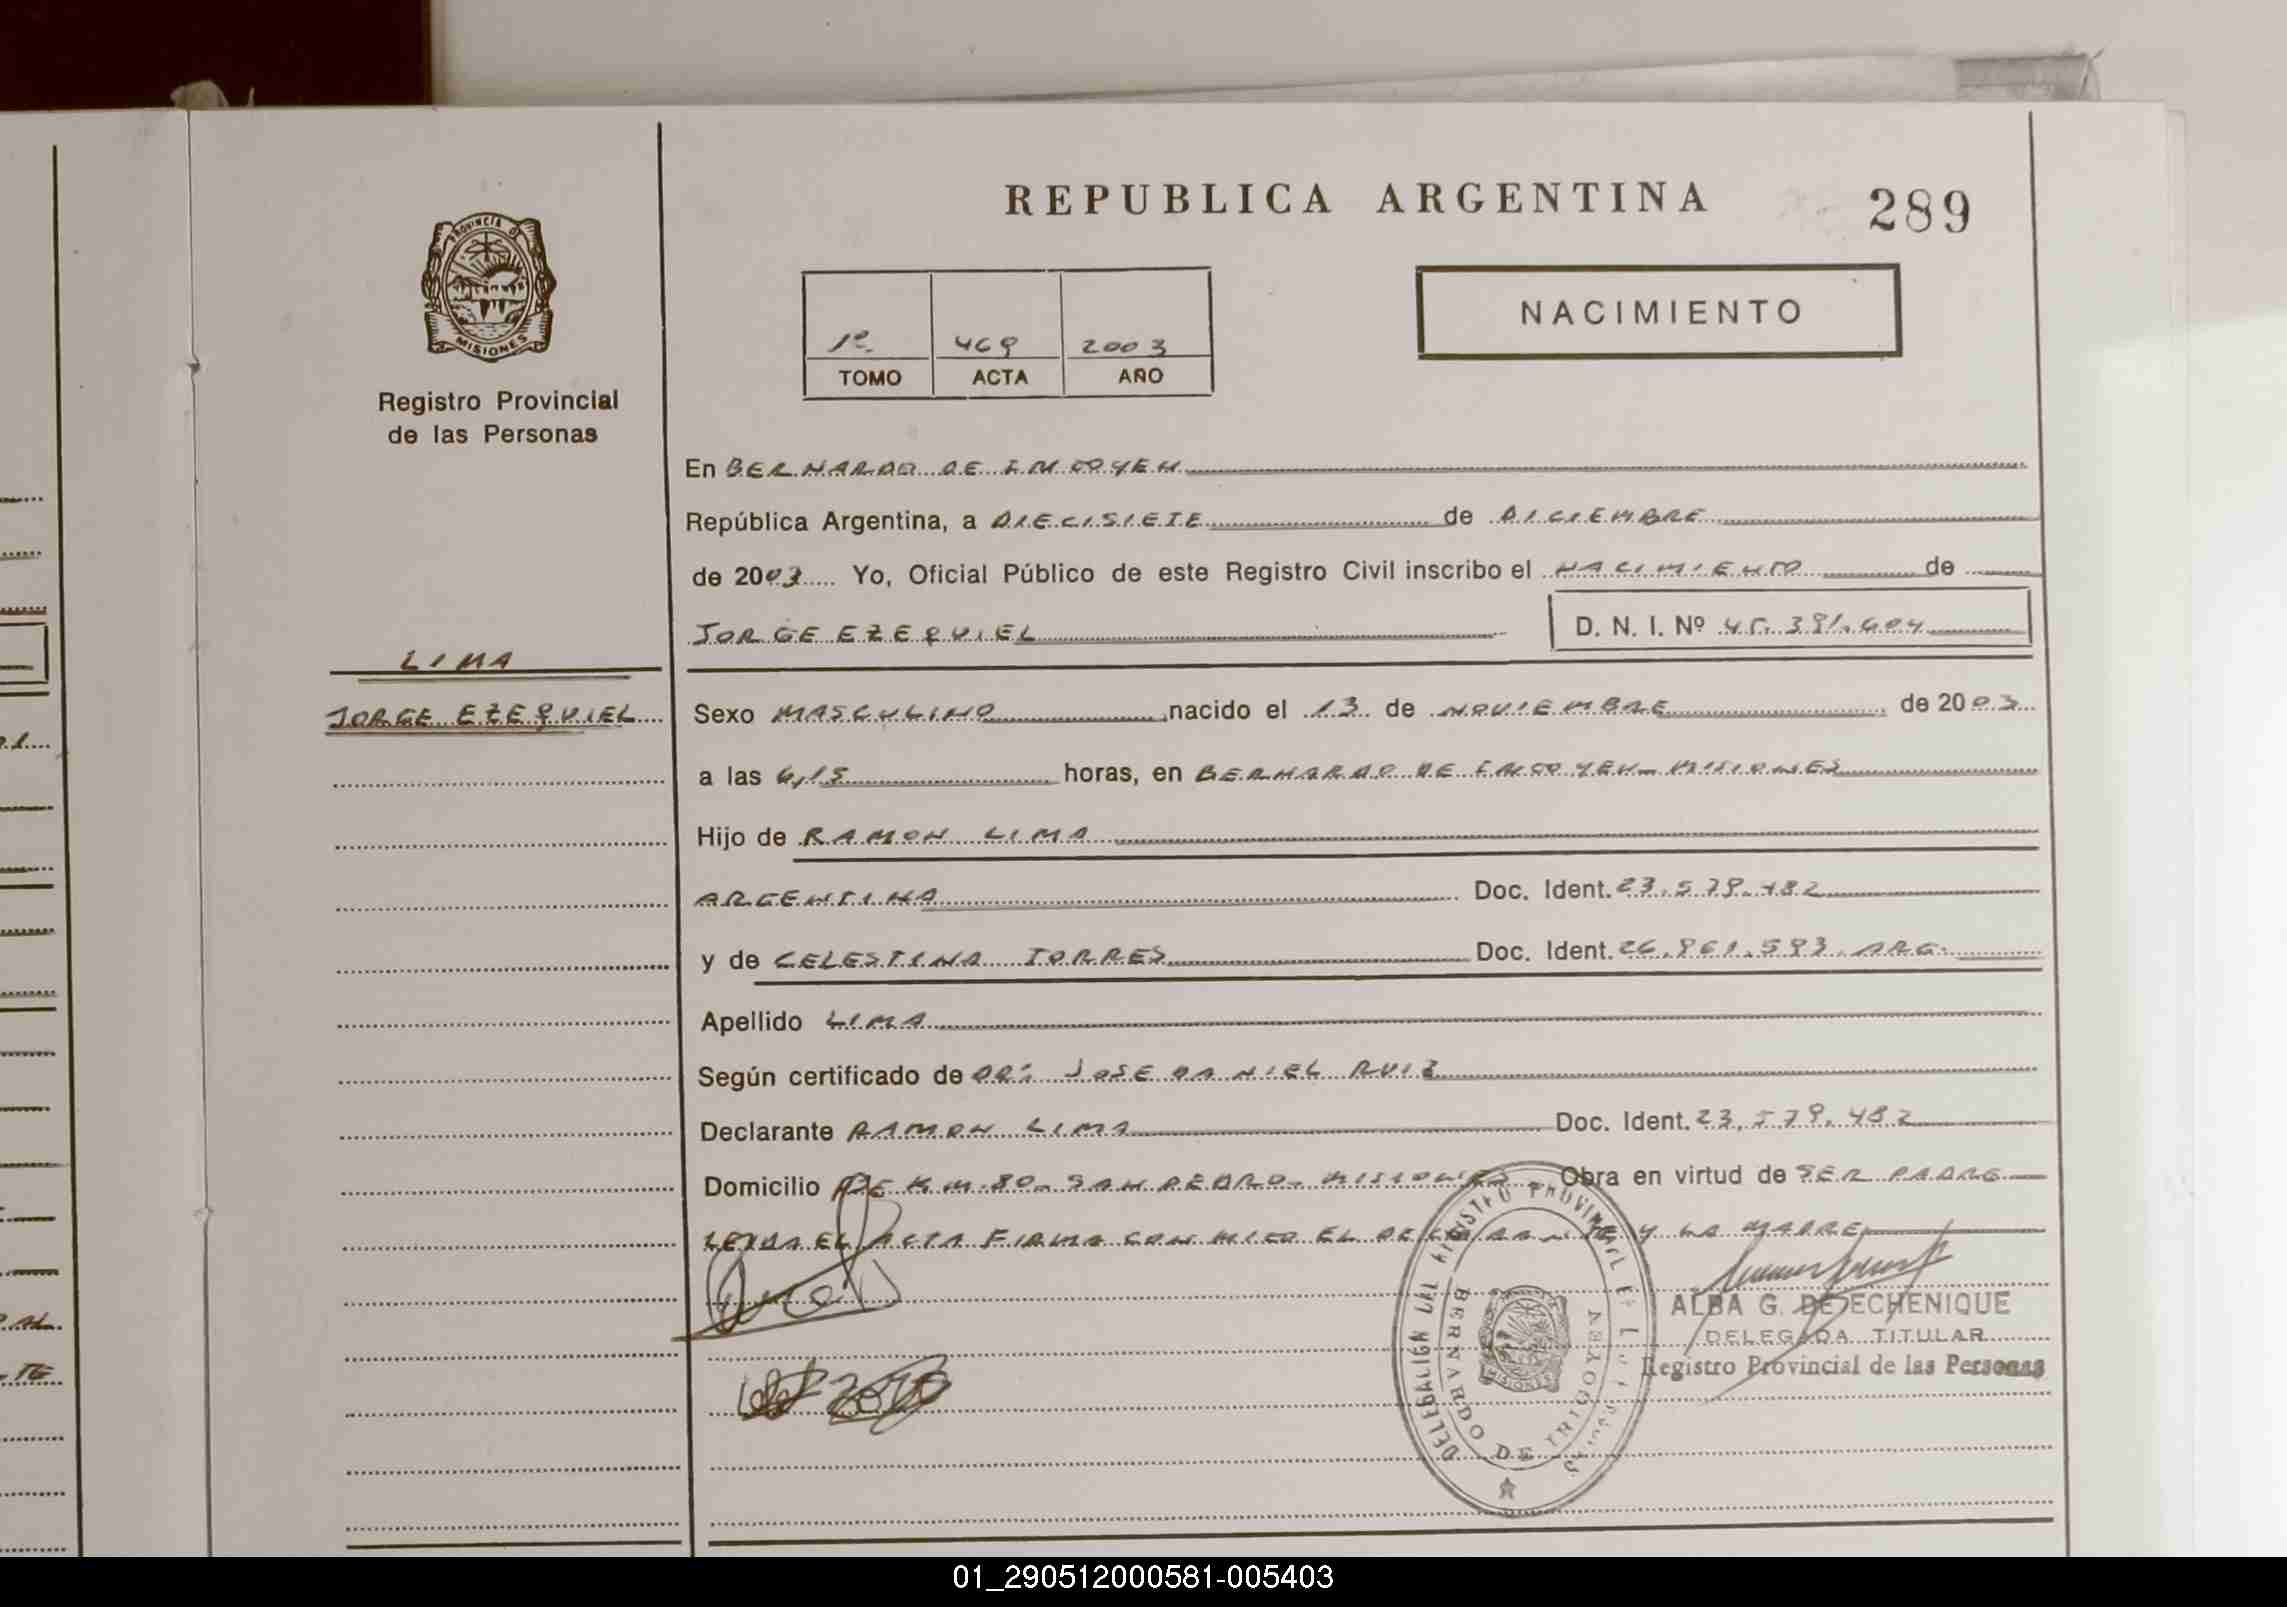 REPUBLICA ARGENTINA
289
PROVINCIA DE
MISIONES
Registro Provincial
de las Personas
1º 469 2003
TOMO ACTA AÑO
NACIMIENTO
En BERNARDO DE IRIGOYEN
República Argentina, a DIECISIETE de DICIEMBRE
de 2003 Yo, Oficial Público de este Registro Civil inscribo el NACIMIENTO de
JORGE EZEQUIEL D. N. I. Nº
LIMA
JORGE EZEQUIEL
Sexo MASCULINO nacido el 13 de NOVIEMBRE de 2003
a las 6,15 horas, en BERNARDO DE IRIGOYEN- MISIONES
Hijo de RAMON LIMA
ARGENTINA Doc. Ident. 23.579.482
y de CELESTINA TORRES Doc. Ident. 26.861.593 ARG.
Apellido LIMA
Según certificado de DR: JOSE DANIEL RUIZ
Declarante RAMON LIMA Doc. Ident. 23.579.482
Domicilio DE KM.80- SAN PEDRO- MISIONES Obra en virtud de SER PADRE
LEIDA EL ACTA FIRMA CONMIGO EL DECLARANTE Y LA MADRE
ALBA G. DE ECHENIQUE
DELEGADA TITULAR
Registro Provincial de las Personas
BERNARDO DE IRIGOYEN
01_290512000581-005403